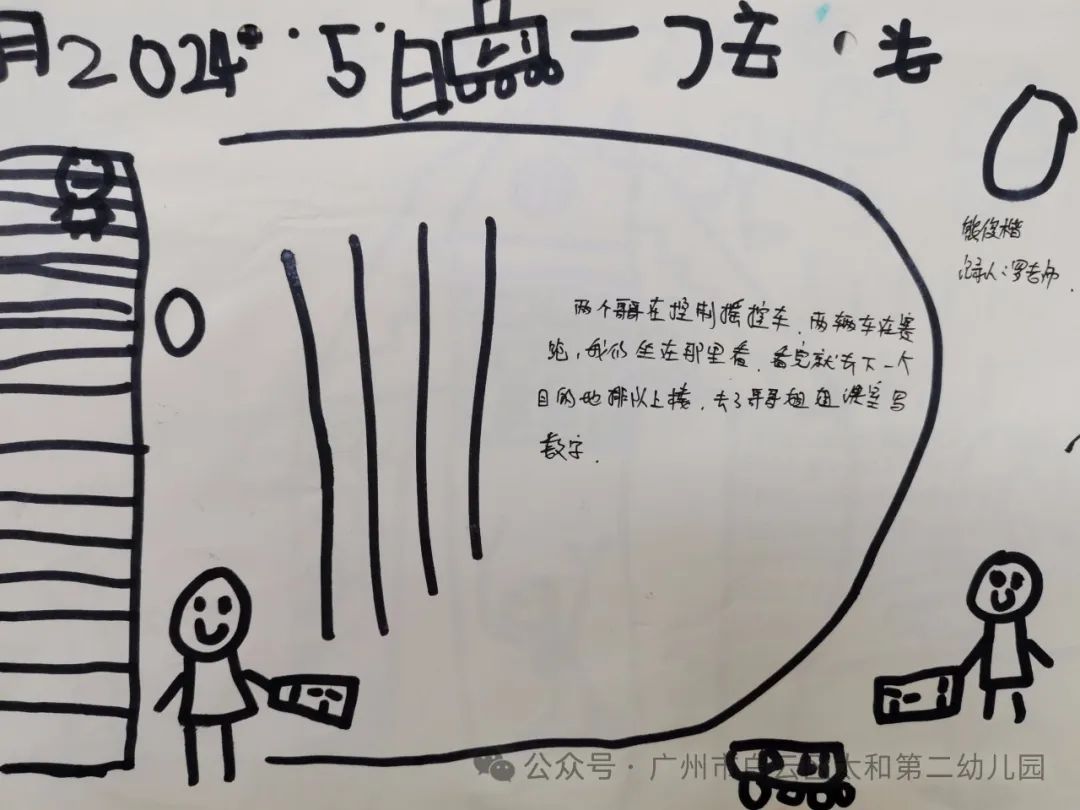 月2024·5日
熊俊楷
记录人:罗老师.
两个哥哥在控制摇控车,两辆车在赛
跑,我们坐在那里看,看完就去下一个
目的地排队上楼,去了哥哥姐姐课室写
数字.
公众号·广州市白云区太和第二幼儿园